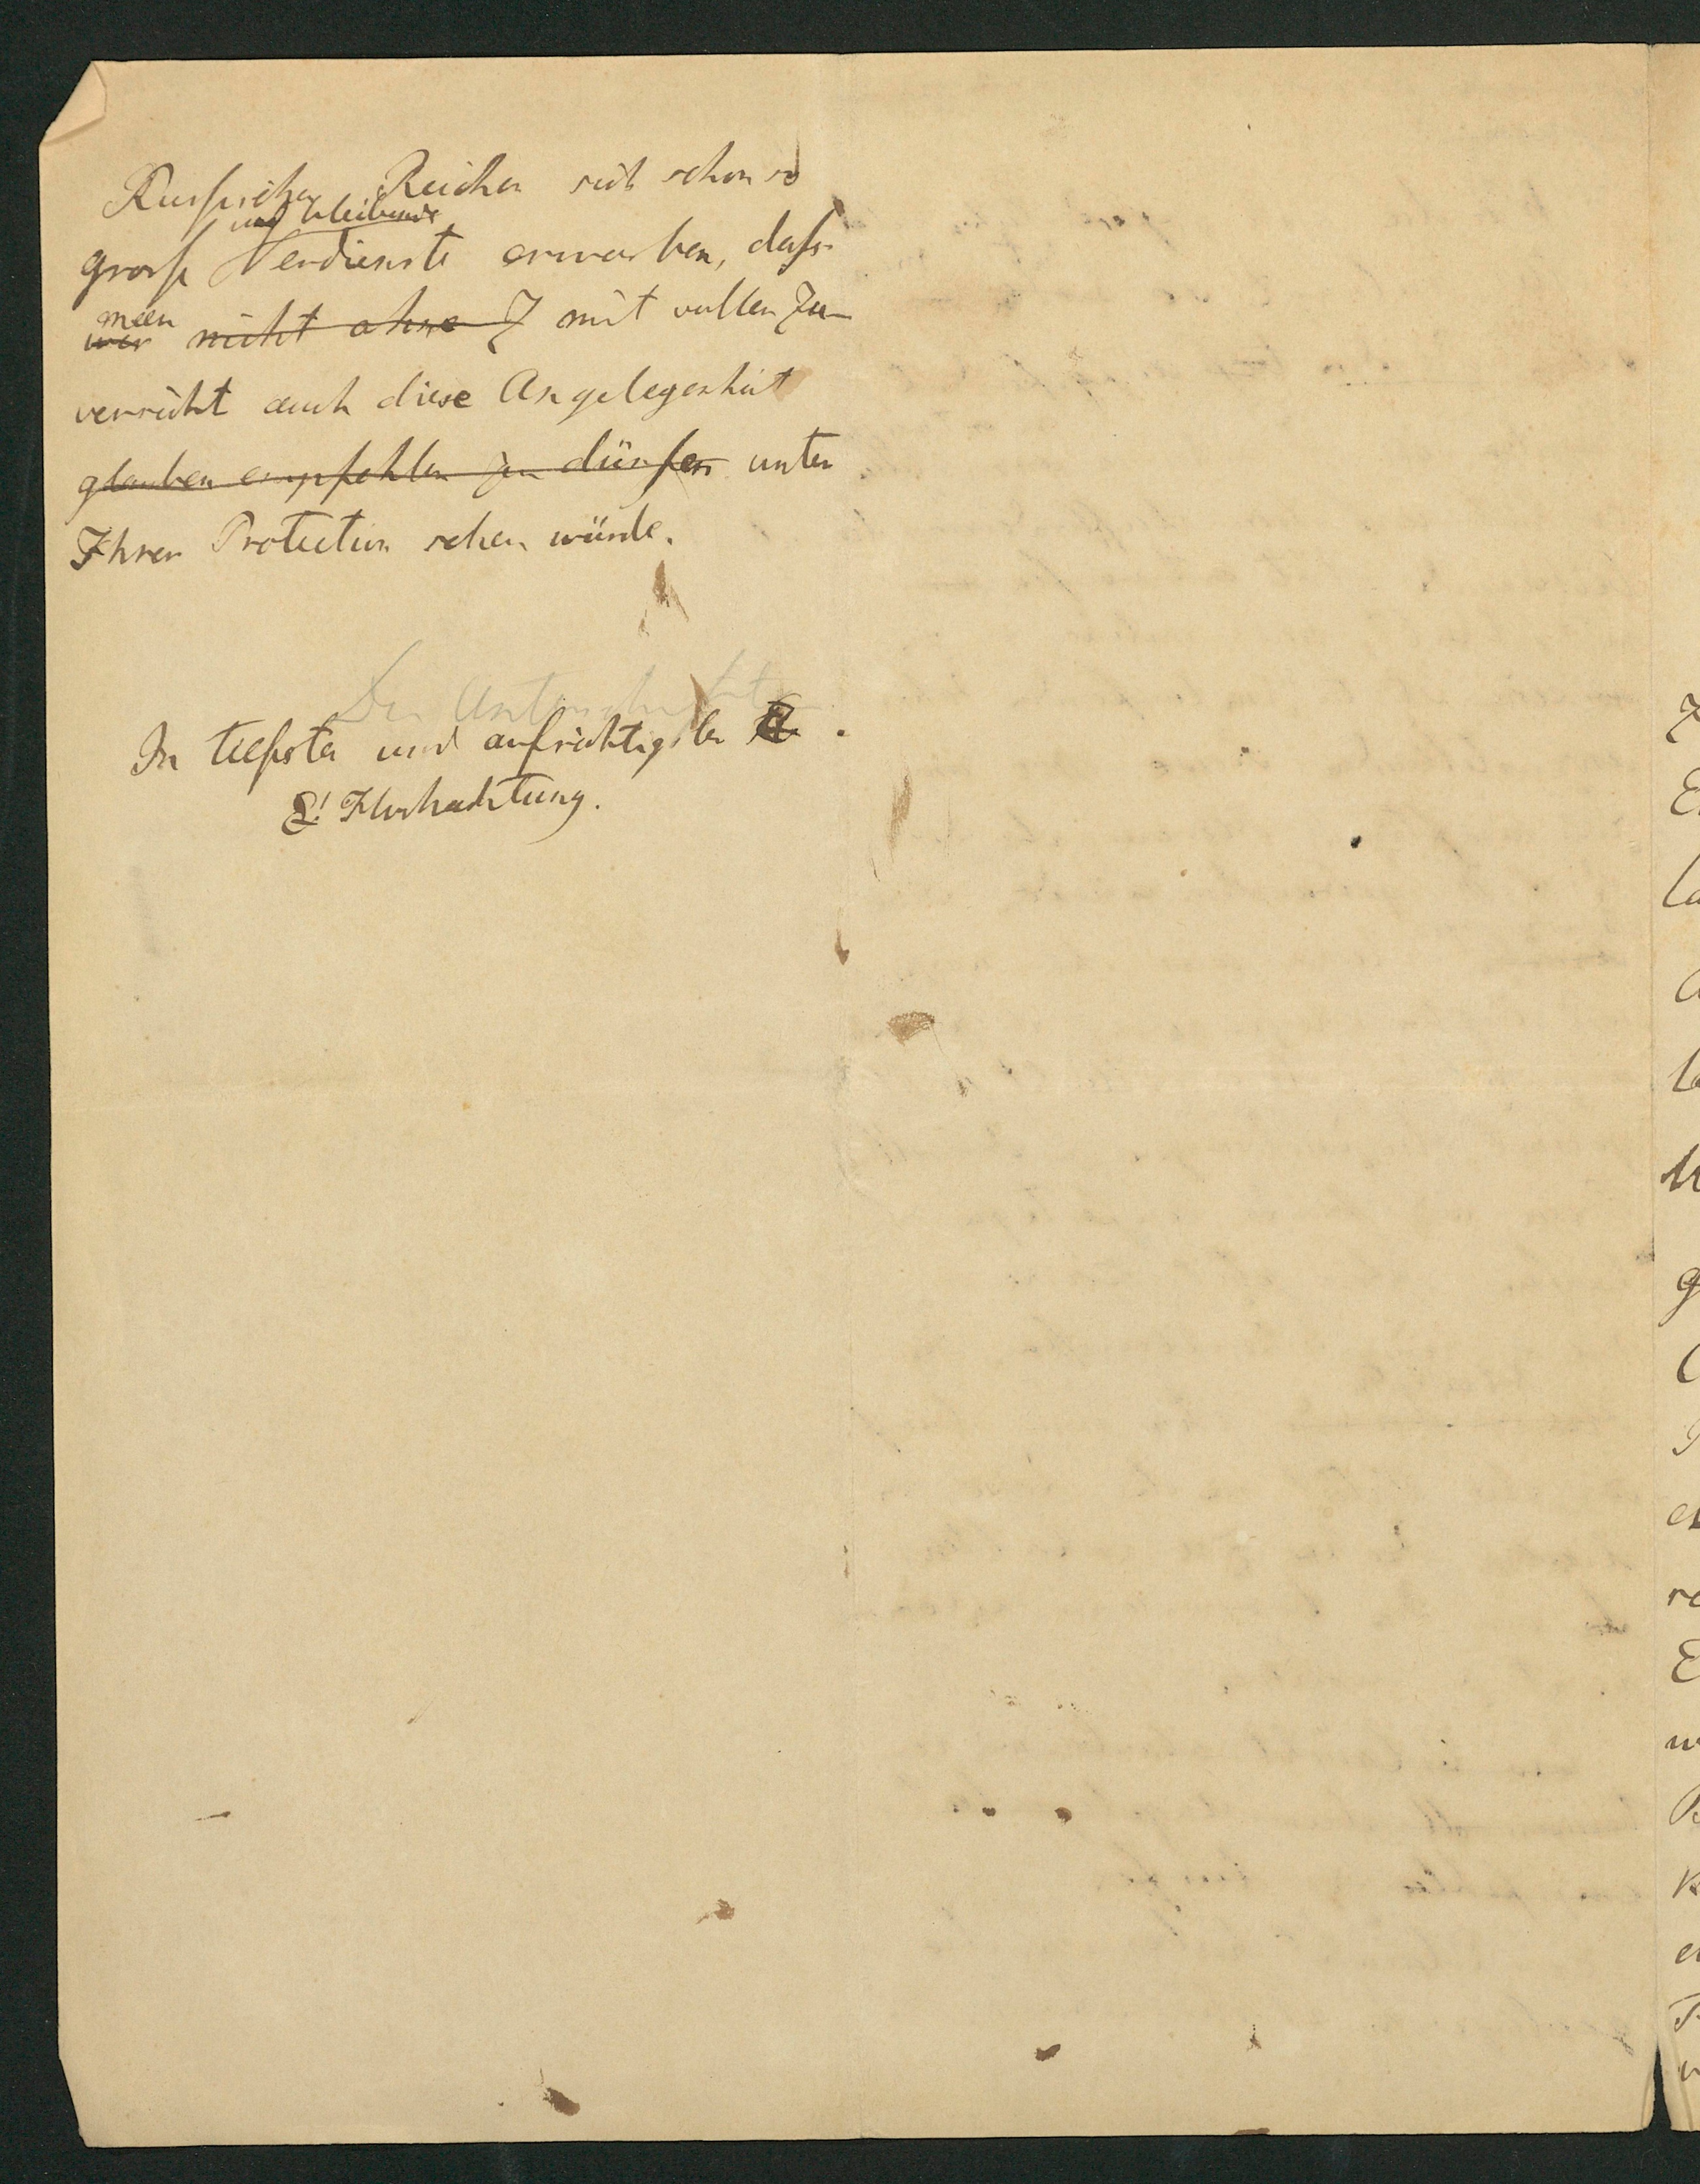 Russischen Reiches sich schon so
und bleibende
grosse Verdienste erworben, dass
man
wer nicht ohne Z mit vollen Zu-
versicht auch diese Angelegenheit
glauben empfehlen zu dürfen unter
Ihrer Protection sehen würde.
Der Unterzeichnete
In tiefster und aufrichtigster
Hochachtung.